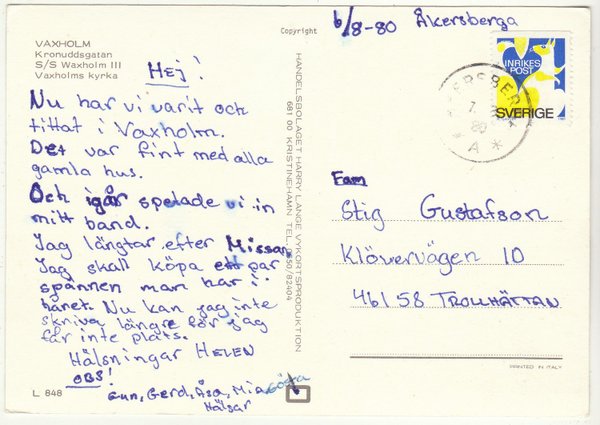 VAXHOLM
Kronuddsgatan
S/S Waxholm III
Vaxholms kyrka
Copyright
6/8-80 Åkersberga
INRIKES
POST
SVERIGE
Hej!
Nu har vi varit och
tittat i Vaxholm.
Det var fint med alla
gamla hus.
Och igår spelade vi in
mitt band.
Jag längtar efter Missan
Jag skall köpa ett par
spännen man har i
håret. Nu kan jag inte
skriva längre för jag
får inte plats.
Hälsningar HELEN
OBS!
Gun, Gerd, Åsa, Mia, Gösta
Hälsar
HANDELSBOLAGET HARRY LANGE VYKORTSPRODUKTION
681 00 KRISTINEHAMN TEL. 0550/82404
Fam
Stig Gustafson
Klövervägen 10
461 58 TROLLHÄTTAN
PRINTED IN ITALY
L 848